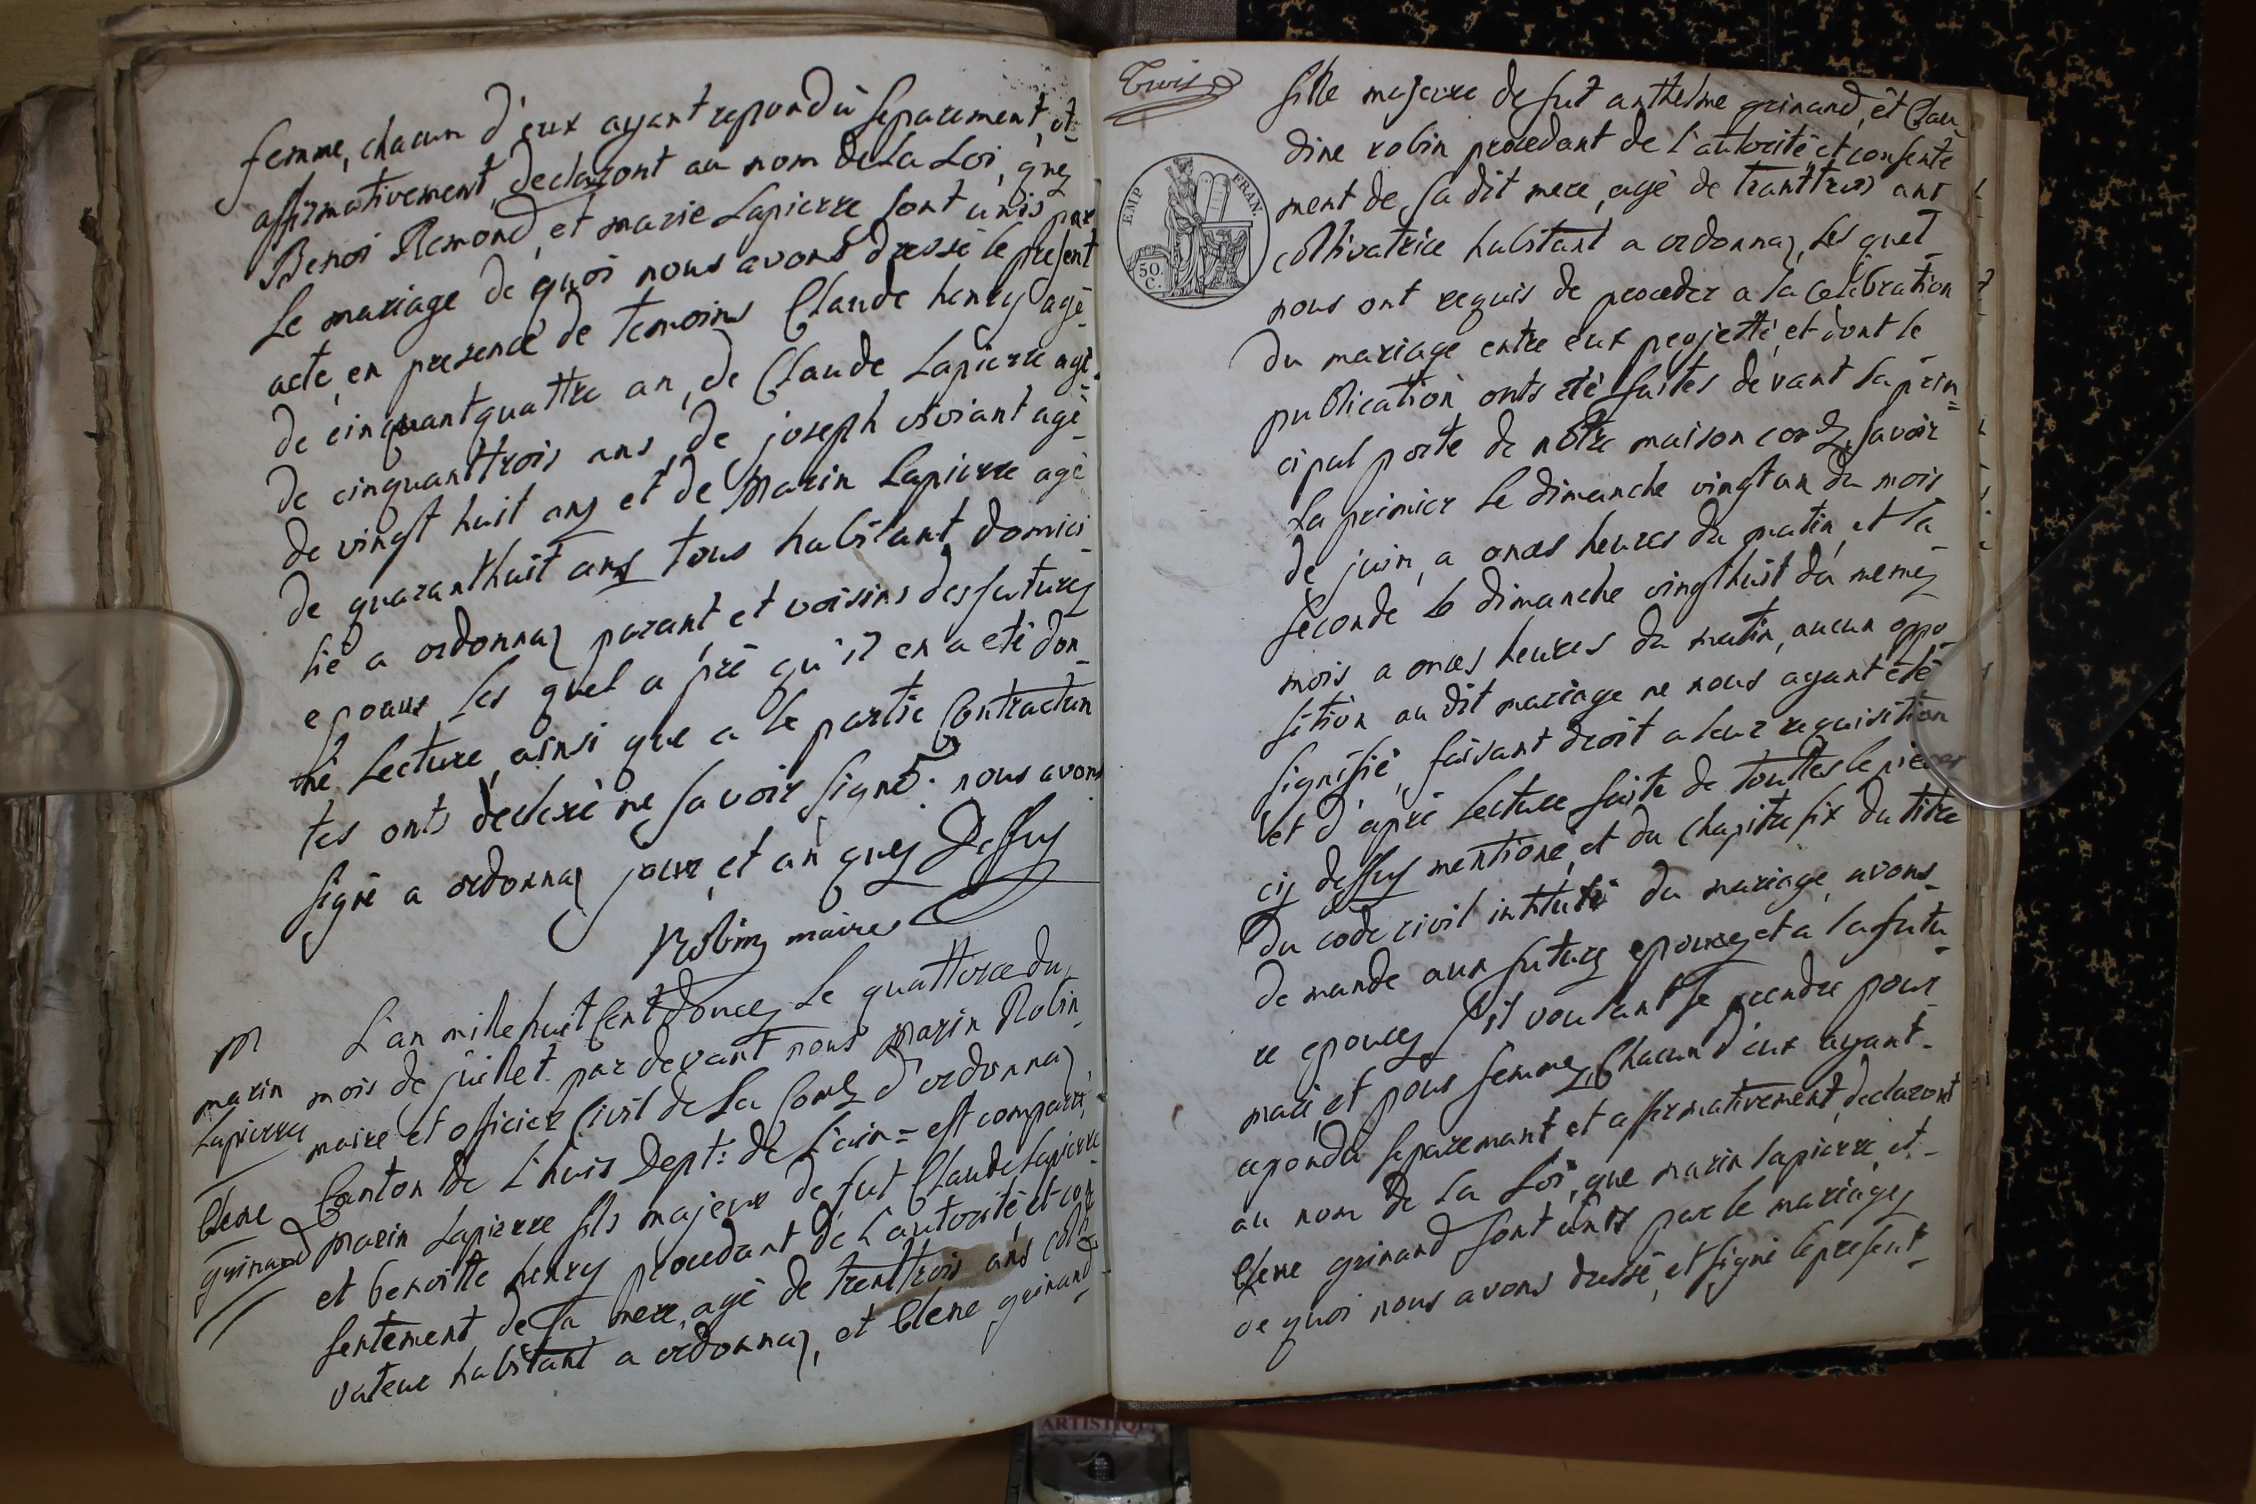 femme, chacun d'eux ayant repondu separement, et
affirmativement, declaront au nom de la Loi, que
Benoi Remond, et marie Lapierre sont unis par
Le mariage de quoi nous avons dressé le present
acte, en presence de temoins Claude henry agé
de cinquantquattre an, de Claude Lapierre agé
de cinquanttrois ans, de joseph viviant agé
de vingt huit ans et de Marin Lapierre agé
de quaranthuit ans tous habitant domici
lié a ordonnaz parant et voisins des futures
epouux les quel a pré qu'il en a eté don
né Lecture, ainsi que a le partie Contractan
tes onts decleré ne savoir signé. nous avons
signé a ordonnaz jour et an que Dessus
Robin maire
M
marin
Lapierre
Clene
guinand
L'an mille huit Cent Douce Le quattorce du
mois de juillet par devant nous Marin Robin
maire et officier Civil de La Come d'ordonnaz
Canton de Lhuis Dept: de L'ain = est comparu
Marin Lapierre fils majeur de fut Claude Lapierre
et benoitte henry procedant de L'autorité et con
sentement de sa mere, agé de trenttrois ans colti
vateur habitant a ordonnaz, et Clene guinand
Trois
EMP FRAN.
50. C.
fille majeure de fut anthelme guinand, et Clau
dine robin procedant de l'autorité et consente
ment de sa dit mere, agé de tranttrois ans
coltivatrice habitant a ordonnaz, Les quel
nous ont requis de proceder a la celebration
du mariage entre eux projetté, et dont le
publication onts eté faites devant la prin=
cipal porte de notre maison come savoir
La primier Le dimanche vingtun du mois
de juin, a onces heures du matin, et la
seconde Le dimanche vingthuit du meme
mois a onces heures du matin, aucun oppo
sition au dit mariage ne nous ayant eté
signifié, faisant droit a leur requisition
et d'apré Lecture faite de touttes le pieces
cij dessus mentioné, et du chapitre six du titre
du code civil intitulé du mariage, avons
demande aux future epouce et a la futu
re epouce s'il voulant se prendre pour
mari et pour femme, Chacun d'eux ayant
repondu separemant et affirmativement, declaront
au nom de La Loi, que marin lapierre, et
Clene guinand sont unis par le mariage
de quoi nous avons dressé, et signé le present
ARTISTIQUE